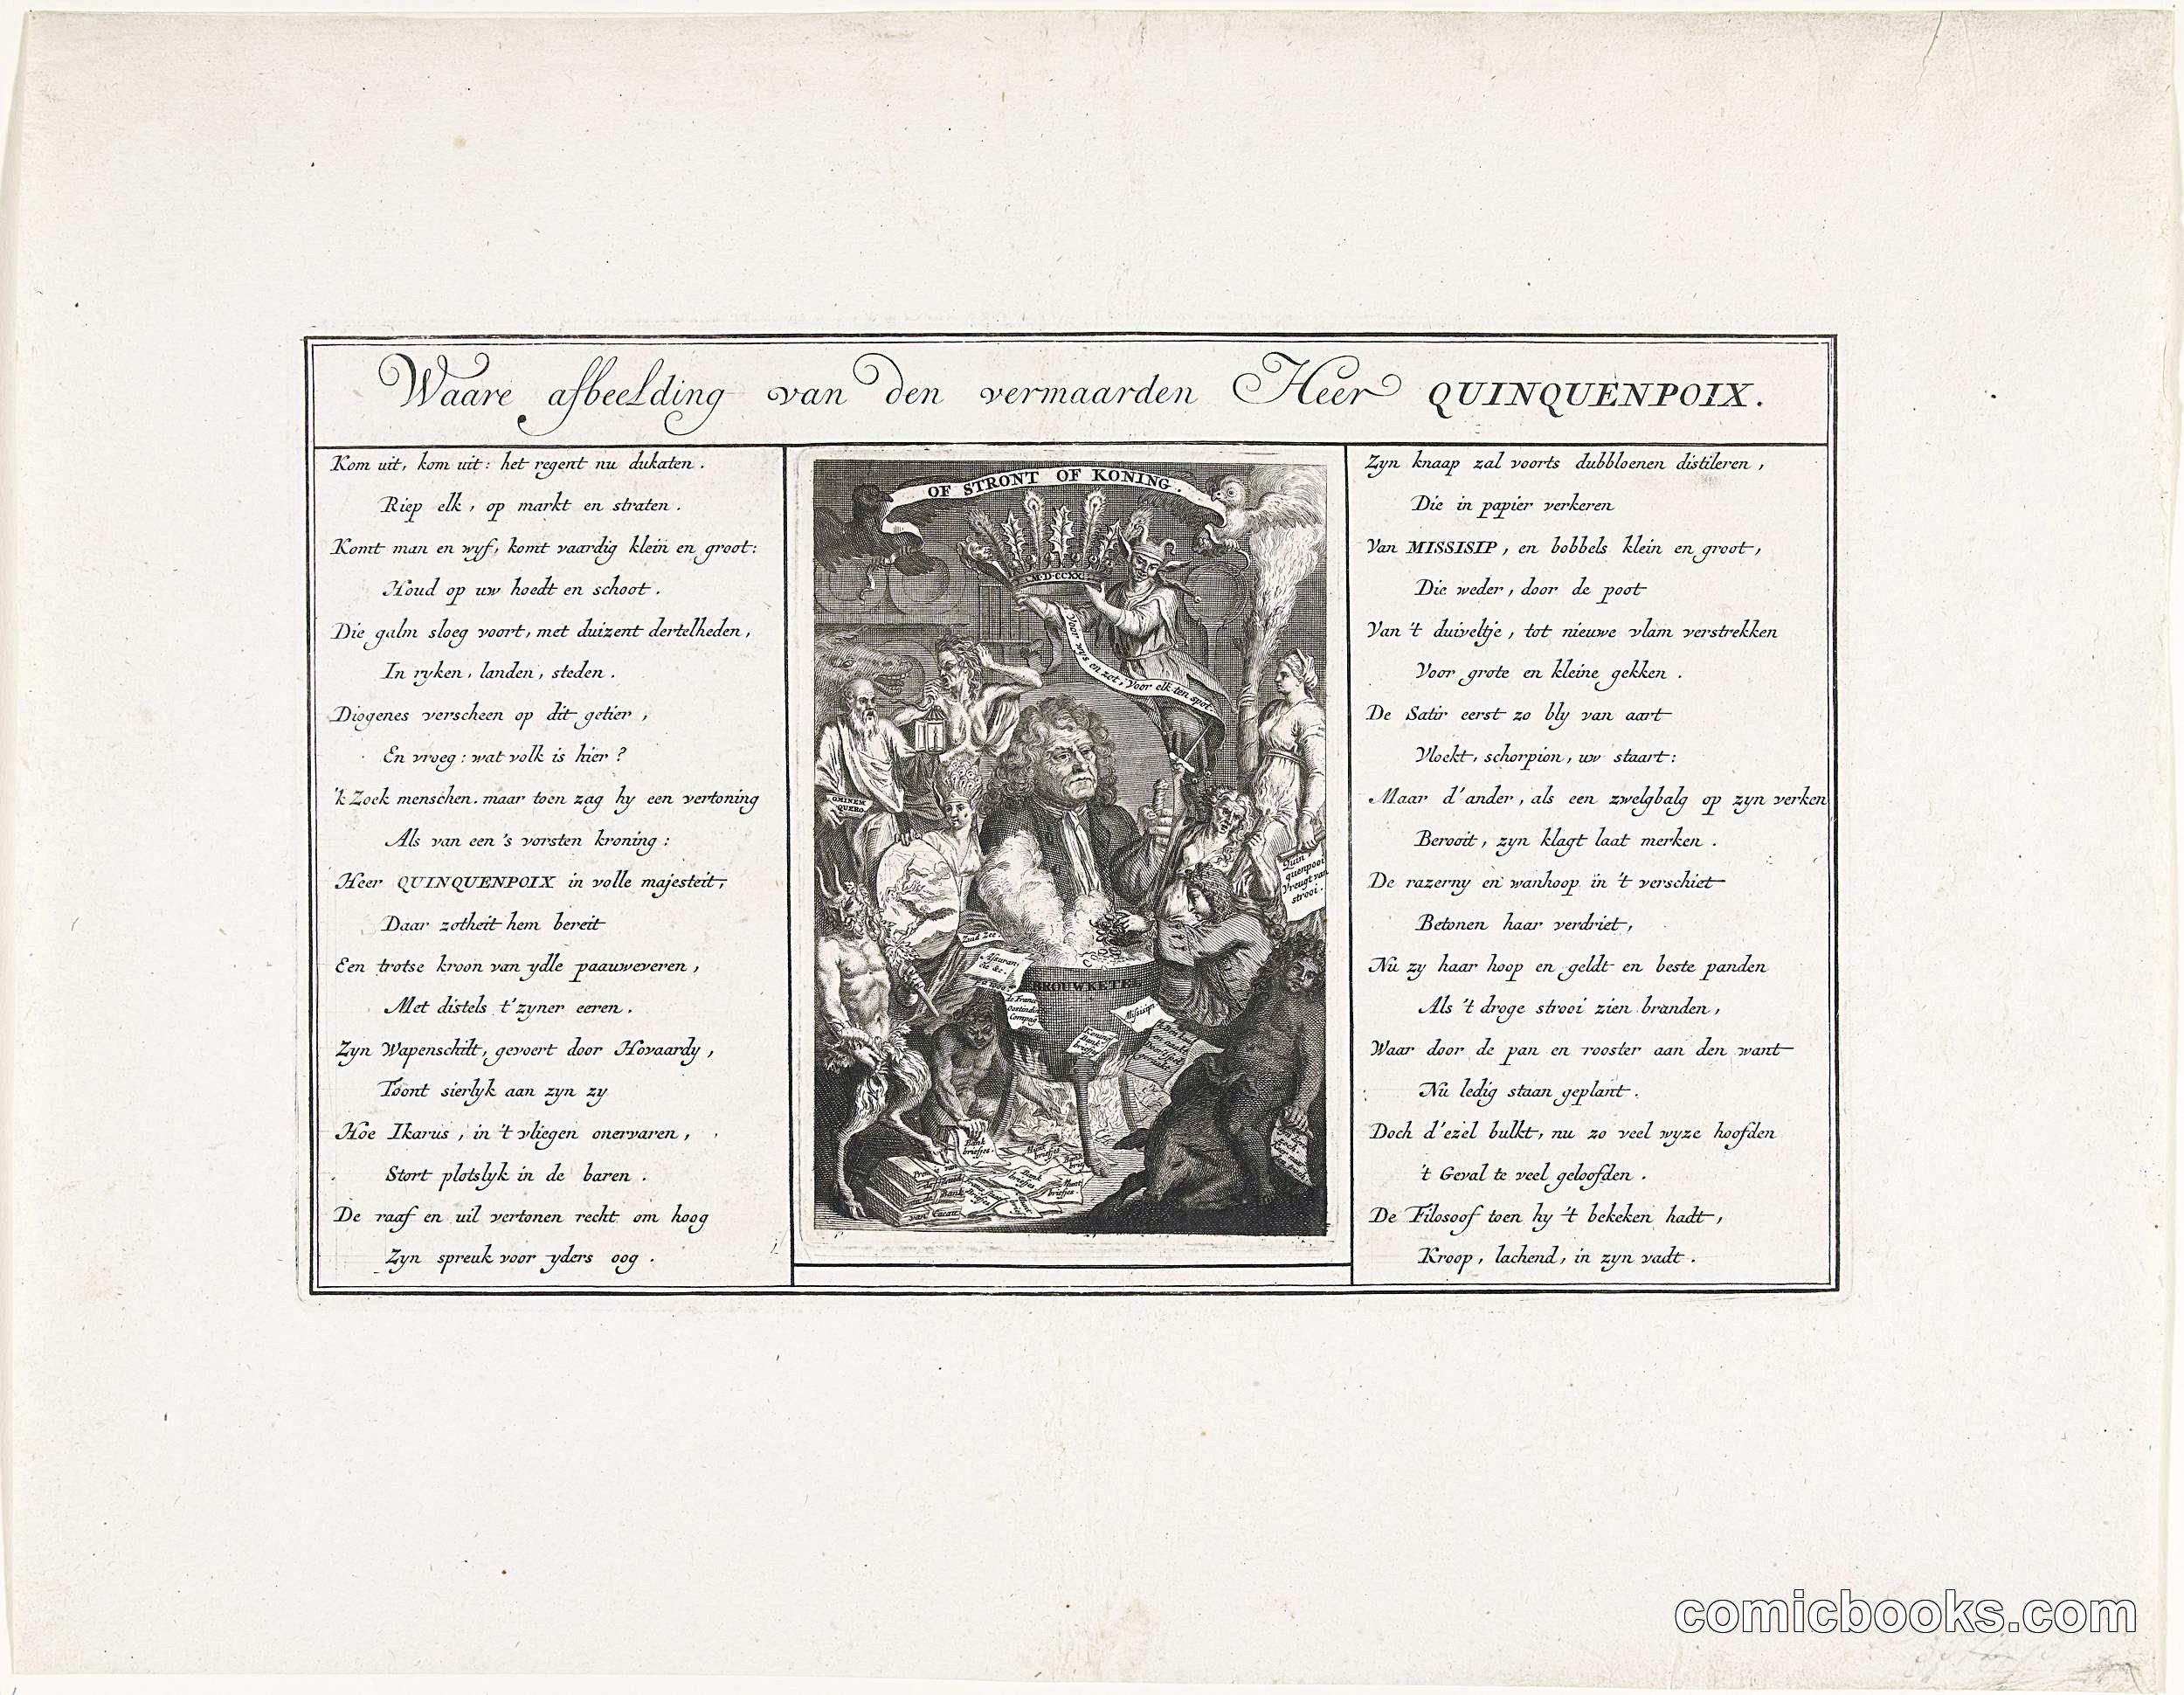 Waare afbeelding van den vermaarden Heer QUINQUENPOIX.
Kom uit, kom uit: het regent nu dukaten.
Riep elk, op markt en straten.
Komt man en wyf, komt vaardig klein en groot:
Houd op uw hoedt en schoot.
Die galm sloeg voort, met duizent dertelheden,
In ryken, landen, steden.
Diogenes verscheen op dit getier,
En vroeg: wat volk is hier?
'k Zoek menschen. maar toen zag hy een vertoning
Als van een 's vorsten kroning:
Heer QUINQUENPOIX in volle majesteit,
Daar zotheit hem bereit
Een trotse kroon van ydle paauweveren,
Met distels t'zyner eeren.
Zyn Wapenschilt, gevoert door Hovaardy,
Toont sierlyk aan zyn zy
Hoe Ikarus, in 't vliegen onervaren,
Stort plotslyk in de baren.
De raaf en uil vertonen recht om hoog
Zyn spreuk voor yders oog.
OF STRONT OF KONING.
M·D·CCXX
Voor wys en zot, Voor elk ten spot.
OMINEM
QUERO
Quin
quenpooi
Vreugt van
strooi.
Zuid Zee
Assuran
tie &c.
de Franc
Oostindi
Compag
BROUWKETEL
Missisipi
Bank
briefjes.
Munt
briefjes
Bank
briefjes
Munt
briefjes.
van Cacau
Zyn knaap zal voorts dubbloenen distileren,
Die in papier verkeren
Van MISSISIP, en bobbels klein en groot,
Die weder, door de poot
Van 't duiveltje, tot nieuwe vlam verstrekken
Voor grote en kleine gekken.
De Satir eerst zo bly van aart
Vloekt, schorpion, uw staart:
Maar d'ander, als een zwelgbalg op zyn verken
Berooit, zyn klagt laat merken.
De razerny en wanhoop in 't verschiet
Betonen haar verdriet,
Nu zy haar hoop en geldt en beste panden
Als 't droge strooi zien branden,
Waar door de pan en rooster aan den want
Nu ledig staan geplant.
Doch d'ezel bulkt, nu zo veel wyze hoofden
't Geval te veel geloofden.
De Filosoof toen hy 't bekeken hadt,
Kroop, lachend, in zyn vadt.
comicbooks.com